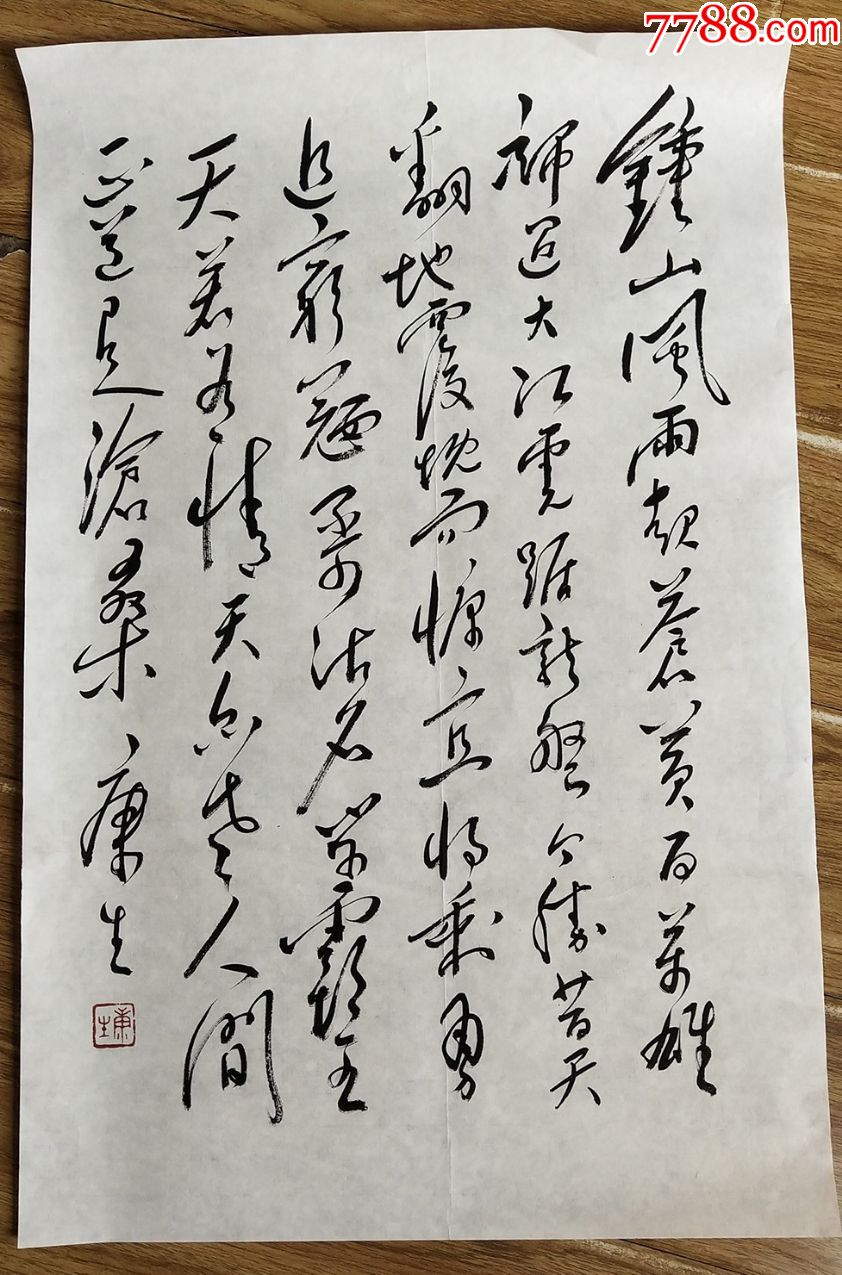 7788.com
鍾山風雨起蒼黃百萬雄
師過大江虎踞龍盤今勝昔天
翻地覆慨而慷宜將剩勇
追窮寇不可沽名學霸王
天若有情天亦老人間
正道是滄桑 康生
康生